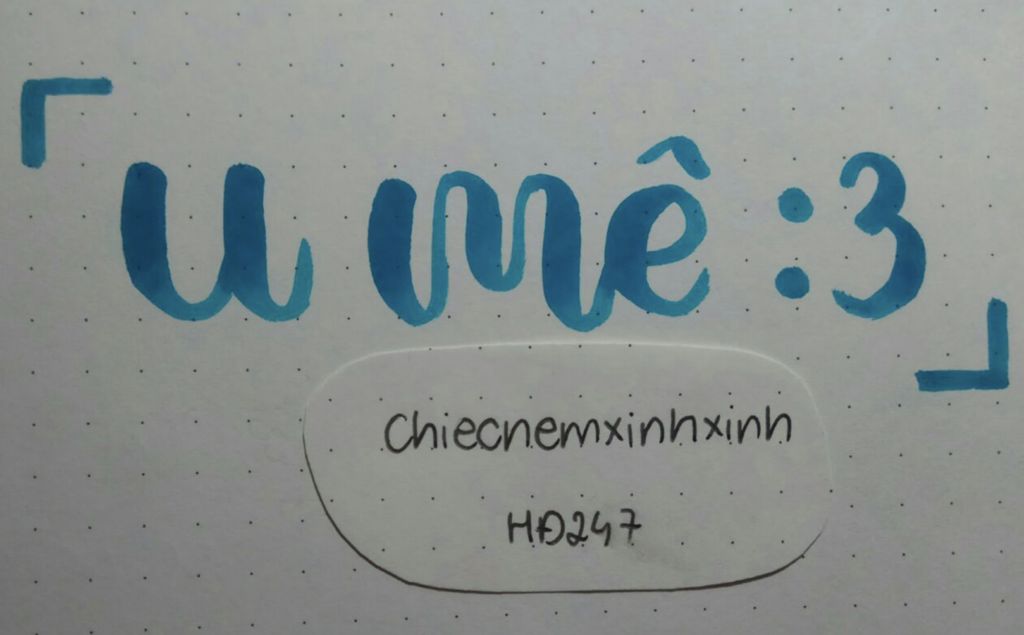 u mê :3
chiecnemxinhxinh
HĐ247